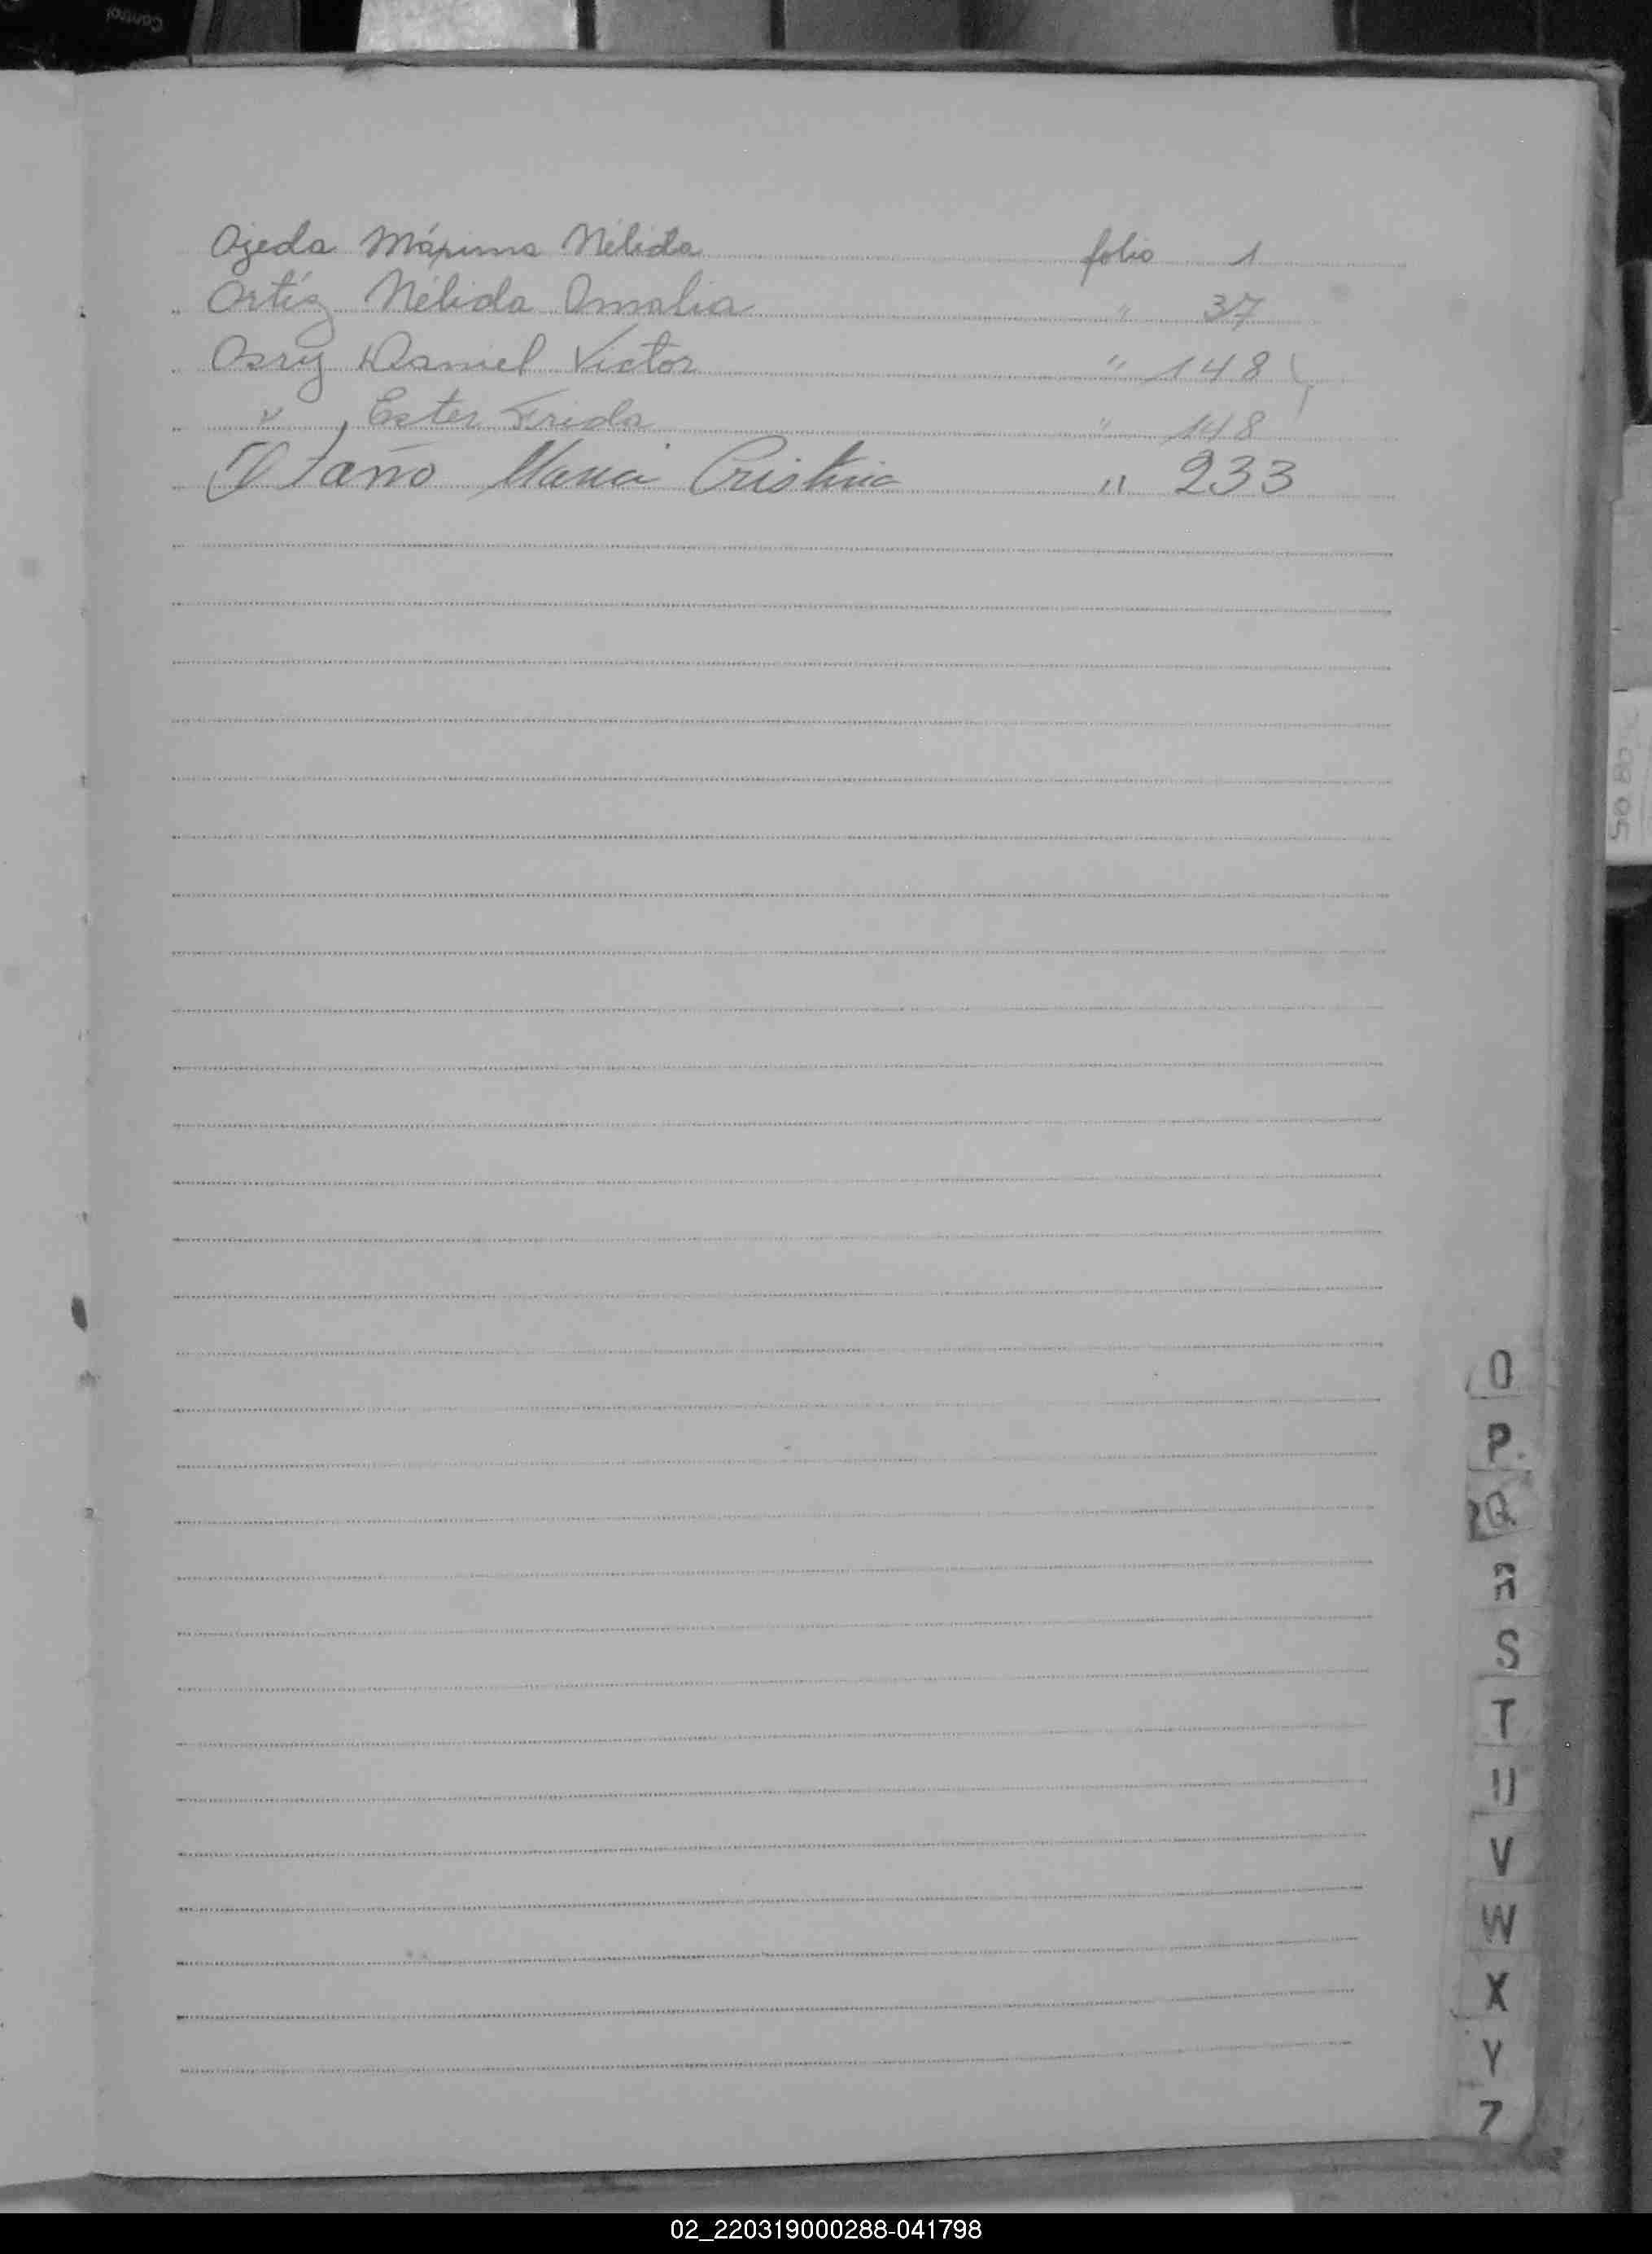 Ojeda Máxima Nélida folio 1
Ortíz Nélida Amalia " 37
Osry Daniel Victor " 148
" , Ester Frida " 148
Otaño Maria Cristina " 233
O
P
Q
R
S
T
U
V
W
X
Y
Z
02_220319000288-041798